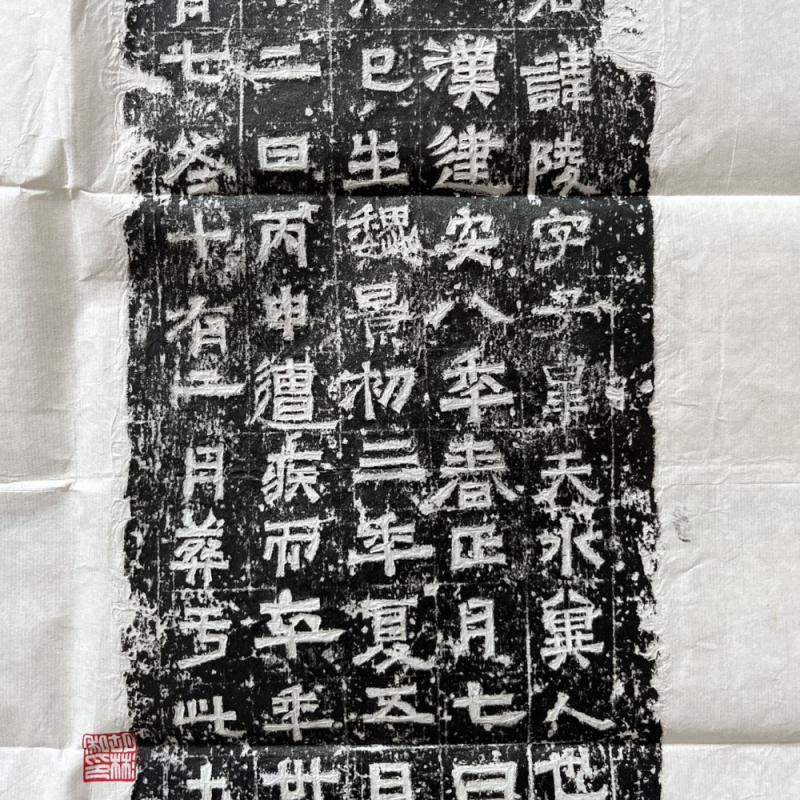 君諱陵字子皐天水冀人世
漢建安八年春正月七日
巳生魏景初三年夏五月
二日丙申遭疾而卒年卅
有七冬十有二月葬于此